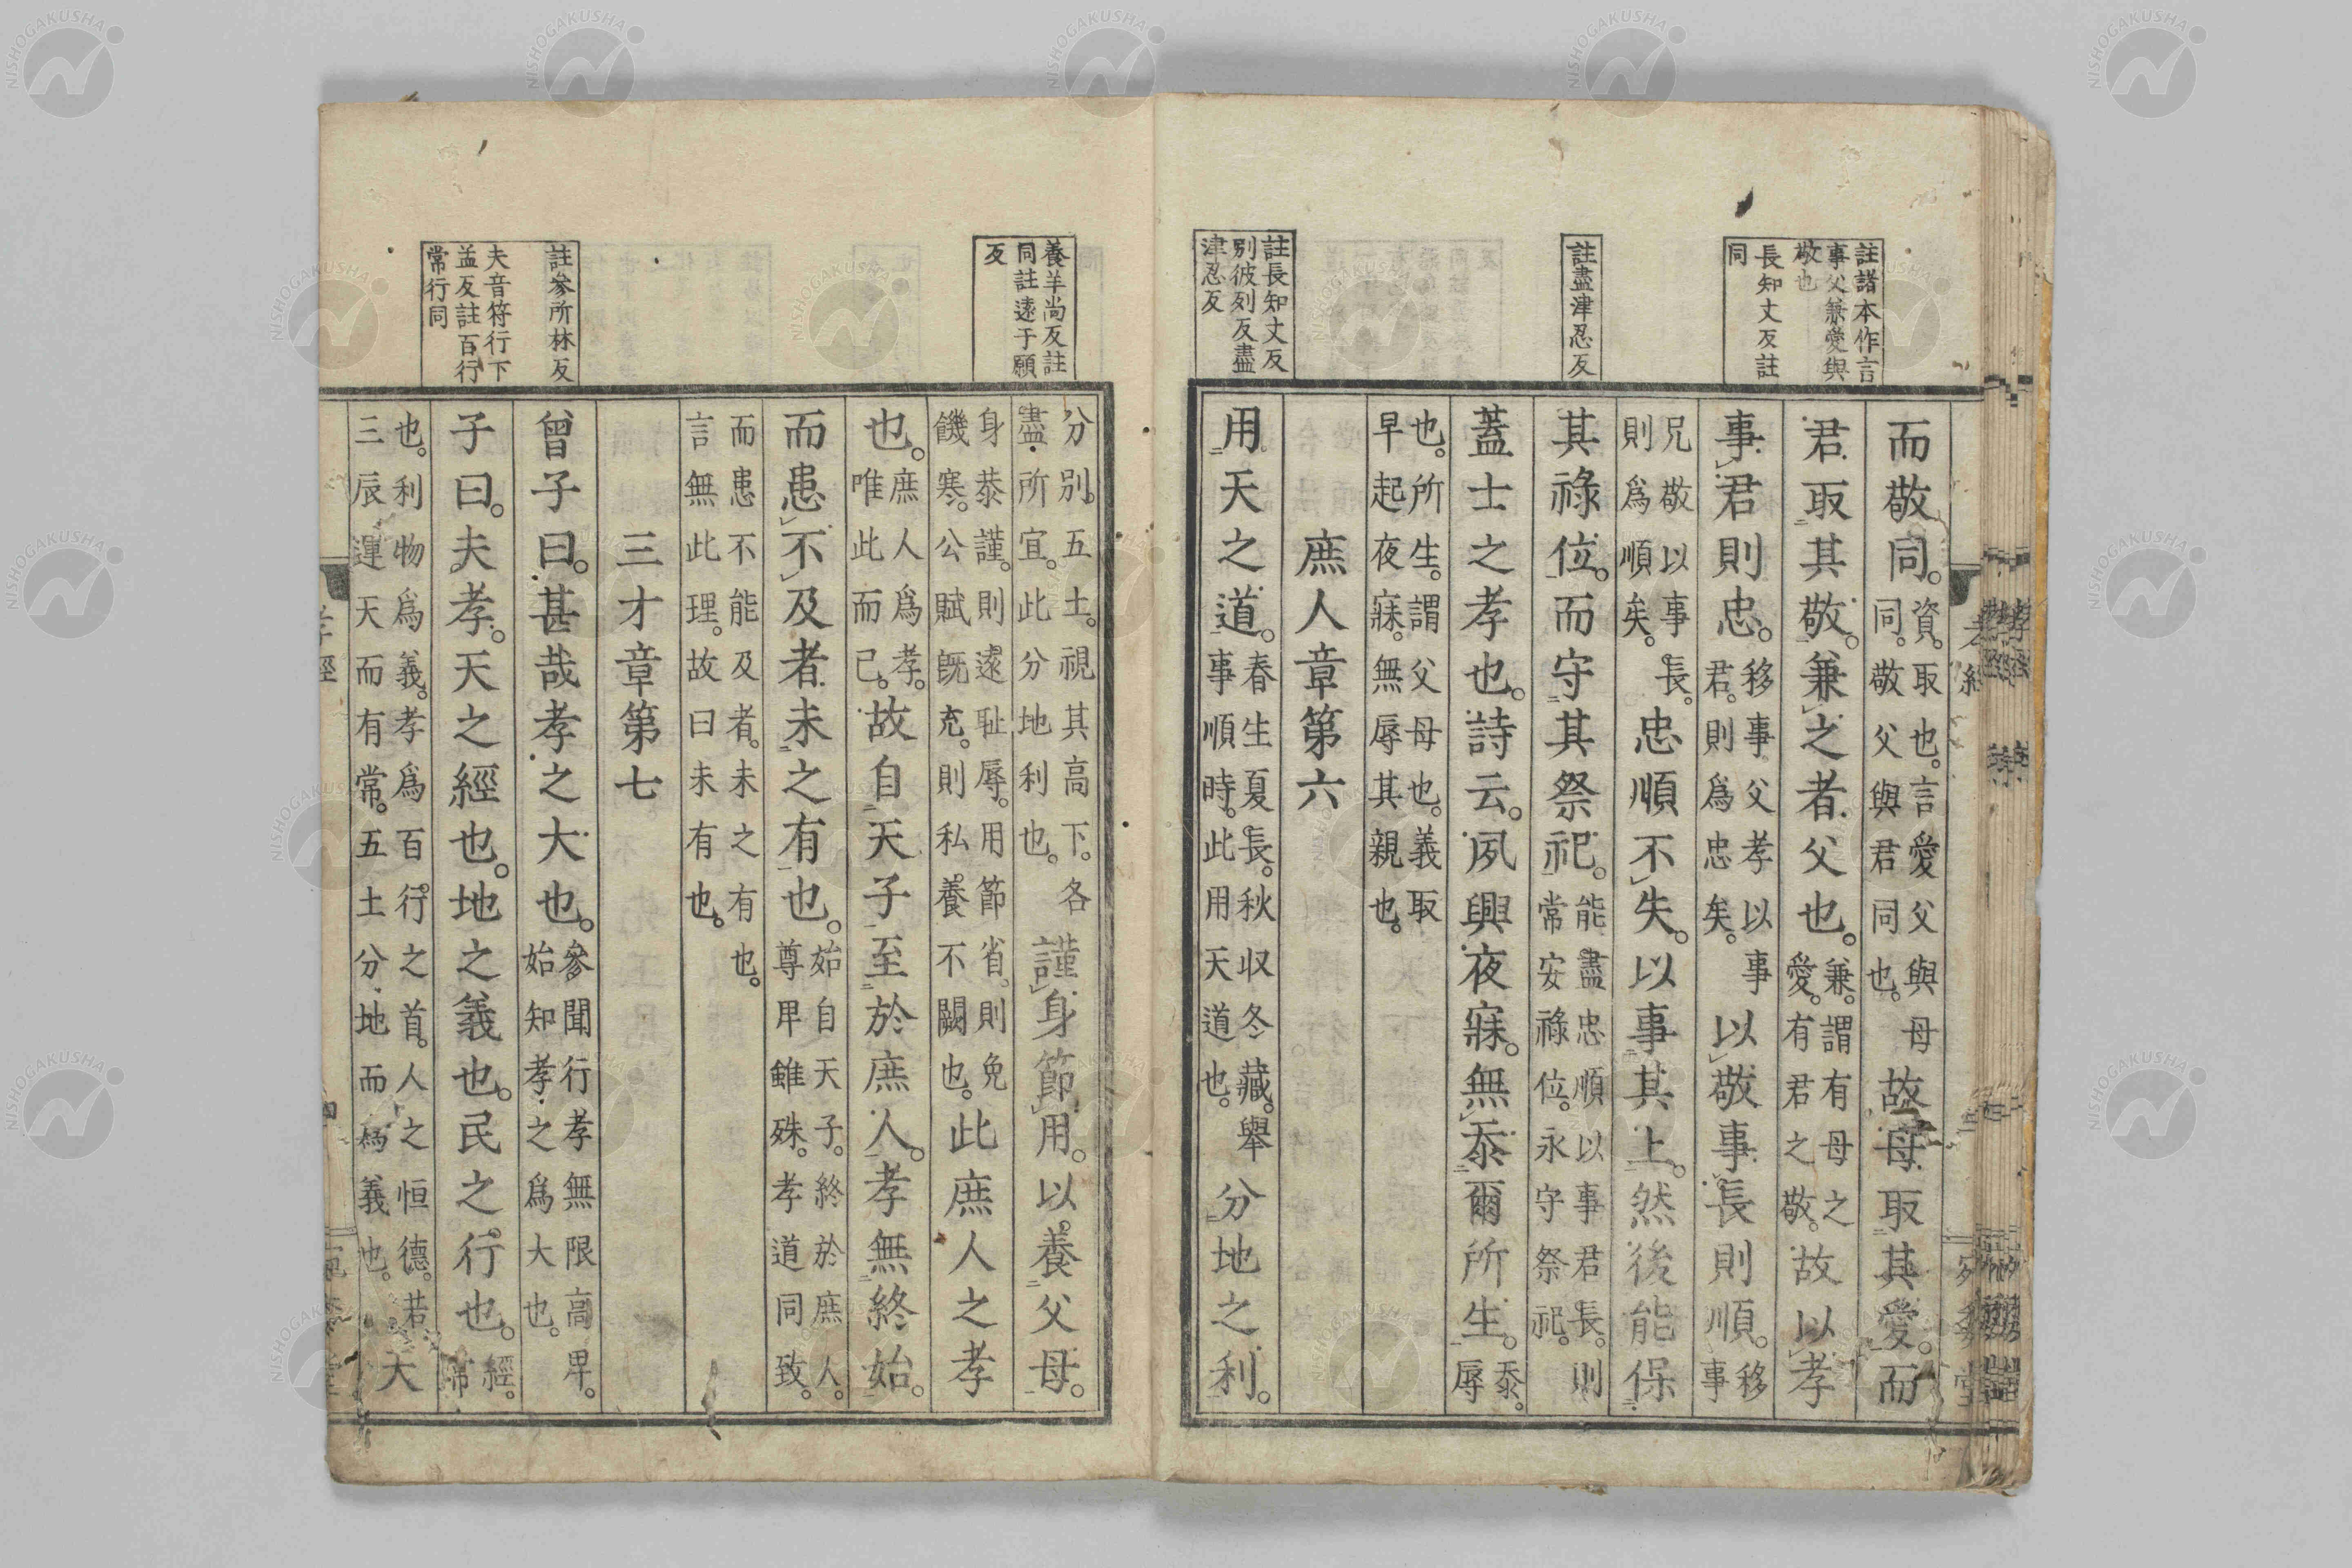 註諸本作言
事父兼愛與
敬也
長知丈反註
同
註盡津忍反
註長知丈反
別彼列反盡
津忍反
而敬同。資。取也。言愛父與母
同。敬父與君同也。故母取其愛。而
君取其敬。兼之者父也。兼。謂有母之
愛。有君之敬。故以孝
事君則忠。移事父孝以事
君。則爲忠矣。以敬事長則順。移
事
兄敬以事長。
則爲順矣。忠順不失。以事其上。然後能保
其祿位。而守其祭祀。能盡忠順以事君長。則
常安祿位。永守祭祀。
蓋士之孝也。詩云。夙興夜寐。無忝爾所生。忝。
辱
也。所生。謂父母也。義取
早起夜寐。無辱其親也。
庶人章第六
用天之道。春生夏長。秋収冬藏。舉
事順時。此用天道也。分地之利。
養羊尚反註
同註遠于願
反
註參所林反
夫音符行下
孟反註百行
常行同
分別五土。視其高下。各
盡所宜。此分地利也。謹身節用。以養父母。
身恭謹。則遠耻辱。用節省。則免
饑寒。公賦既充。則私養不闕也。此庶人之孝
也。庶人爲孝。
唯此而已。故自天子至於庶人。孝無終始。
而患不及者未之有也。始自天子。終於庶人。
尊卑雖殊。孝道同致。
而患不能及者。未之有也。
言無此理。故曰未有也。
三才章第七
曾子曰。甚哉孝之大也。參聞行孝無限高卑。
始知孝之爲大也。
子曰。夫孝。天之經也。地之義也。民之行也。經。
常
也。利物爲義。孝爲百行之首。人之恒德。若
三辰運天而有常。五土分地而爲義也。大